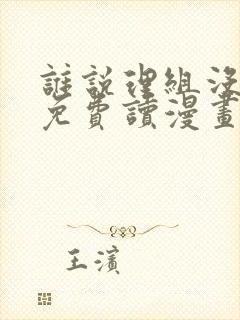 誰說理組沒
免費讀漫畫
王濱